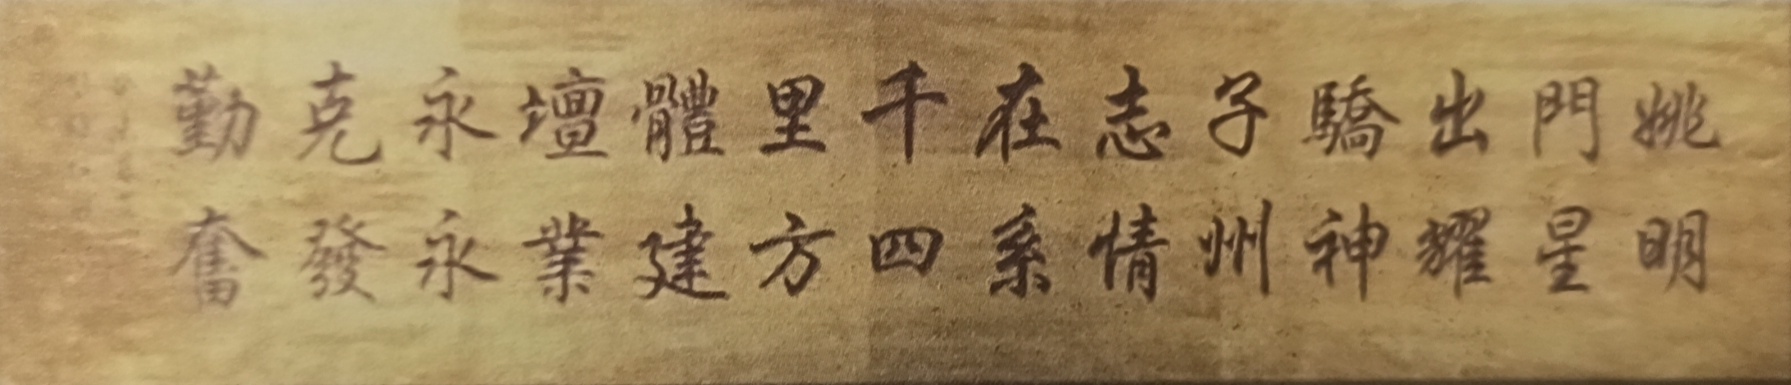 姚門出驕子志在千里體壇永克勤
明星耀神州情系四方建業永發奮